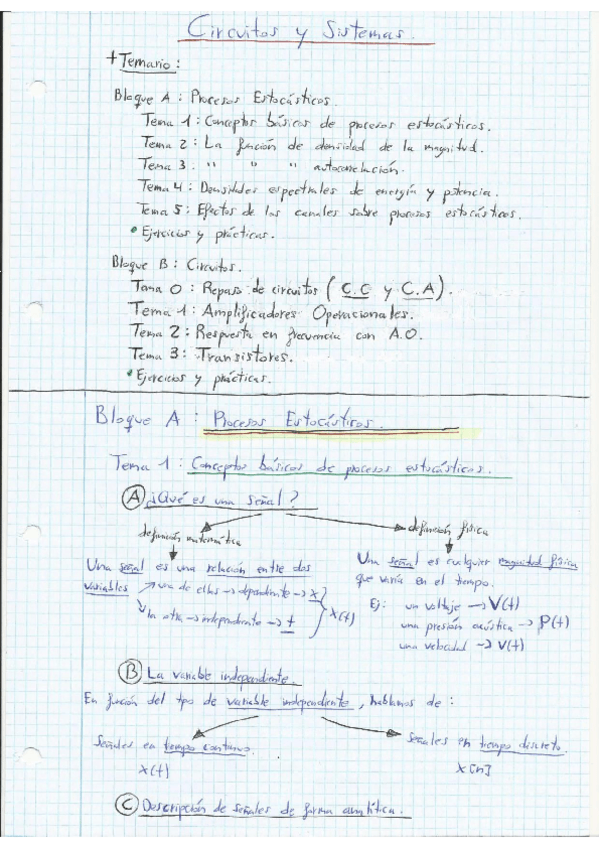 Circuitos y Sistemas.
+ Temario:
Bloque A: Procesos Estocásticos.
Tema 1: Conceptos básicos de procesos estocásticos.
Tema 2: La función de densidad de la magnitud.
Tema 3. " " " autocorrelación.
Tema 4: Densidades espectrales de energía y potencia.
Tema 5: Efectos de los canales sobre procesos estocásticos.
• Ejercicios y prácticas.
Bloque B: Circuitos.
Tema 0: Repaso de circuitos (C.C y C.A).
Tema 1: Amplificadores Operacionales.
Tema 2: Respuesta en frecuencia con A.O.
Tema 3: Transistores.
• Ejercicios y prácticas.
Bloque A: Procesos Estocásticos.
Tema 1: Conceptos básicos de procesos estocásticos.
A ¿Qué es una señal?
definición matemática
definición física
Una señal es una relación entre dos
variables → una de ellas → dependiente → x
→ la otra → independiente → t
} x(t)
Una señal es cualquier magnitud física
que varía en el tiempo.
Ej: un voltaje → V(t)
una presión acústica → P(t)
una velocidad → v(t)
B La variable independiente.
En función del tipo de variable independiente, hablamos de:
Señales en tiempo continuo.
x(t)
Señales en tiempo discreto.
x[n]
C Descripción de señales de forma analítica.